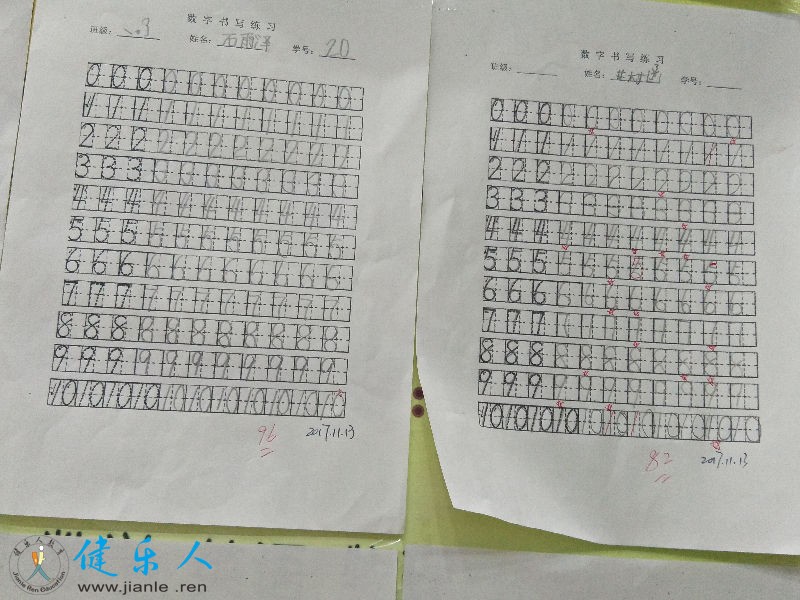 数字书写练习
班级: 姓名: 石雨泽 学号: 20
0 0 0 0 0 0 0 0 0 0 0
1 1 1 1 1 1 1 1 1 1 1
2 2 2 2 2 2 2 2 2 2 2
3 3 3 3 3 3 3 3 3 3 3
4 4 4 4 4 4 4 4 4 4 4
5 5 5 5 5 5 5 5 5 5 5
6 6 6 6 6 6 6 6 6 6 6
7 7 7 7 7 7 7 7 7 7 7
8 8 8 8 8 8 8 8 8 8 8
9 9 9 9 9 9 9 9 9 9 9
10 10 10 10 10 10 10 10 10 10 10
96
2017.11.13
数字书写练习
班级: 姓名: 学号:
0 0 0 0 0 0 0 0 0 0 0
1 1 1 1 1 1 1 1 1 1 1
2 2 2 2 2 2 2 2 2 2 2
3 3 3 3 3 3 3 3 3 3 3
4 4 4 4 4 4 4 4 4 4 4
5 5 5 5 5 5 5 5 5 5 5
6 6 6 6 6 6 6 6 6 6 6
7 7 7 7 7 7 7 7 7 7 7
8 8 8 8 8 8 8 8 8 8 8
9 9 9 9 9 9 9 9 9 9 9
10 10 10 10 10 10 10 10 10 10 10
82
2017.11.13
健乐人教育
Jianle Ren Education
健乐人
www.jianle .ren